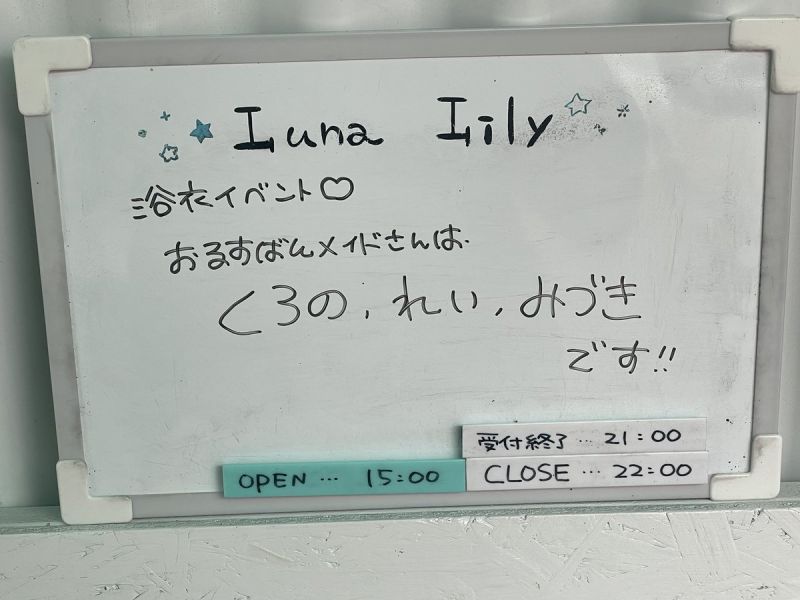 Luna Lily
浴衣イベント♡
おるすばんメイドさんは.
くろの, れい, みづき
です!!
受付終了…21:00
OPEN… 15:00
CLOSE…22:00